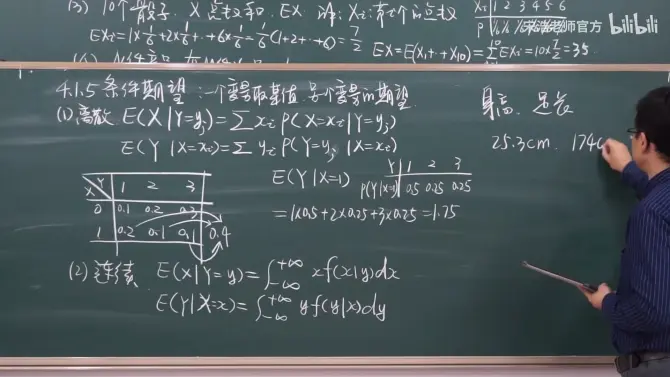 (3) 10个骰子. X 点数和. EX. 解: Xi: 第i个的点数
EXi = 1×1/6 + 2×1/6 + ··· + 6×1/6 = 1/6(1+2+···+6) = 7/2
X 1 2 3 4 5 6
P 1/6 1/6 1/6 1/6 1/6 1/6
宋浩老师官方 bilibili
EX = E(X1+···+X10) = ∑EXi = 10×7/2 = 35.
4.1.5 条件期望: 一个变量取某值, 另个变量的期望.
(1) 离散 E(X|Y=yj) = ∑ xi P(X=xi|Y=yj)
E(Y|X=xi) = ∑ yj P(Y=yj|X=xi)
X Y 1 2 3
0 0.1 0.2 0.3
1 0.2 0.1 0.1 0.4
E(Y|X=1)
Y 1 2 3
P(Y|X=1) 0.5 0.25 0.25
= 1×0.5+2×0.25+3×0.25 = 1.75
(2) 连续 E(X|Y=y) = ∫_{-∞}^{+∞} x f(x|y)dx
E(Y|X=x) = ∫_{-∞}^{+∞} y f(y|x)dy
身高. 足长
25.3cm. 174c